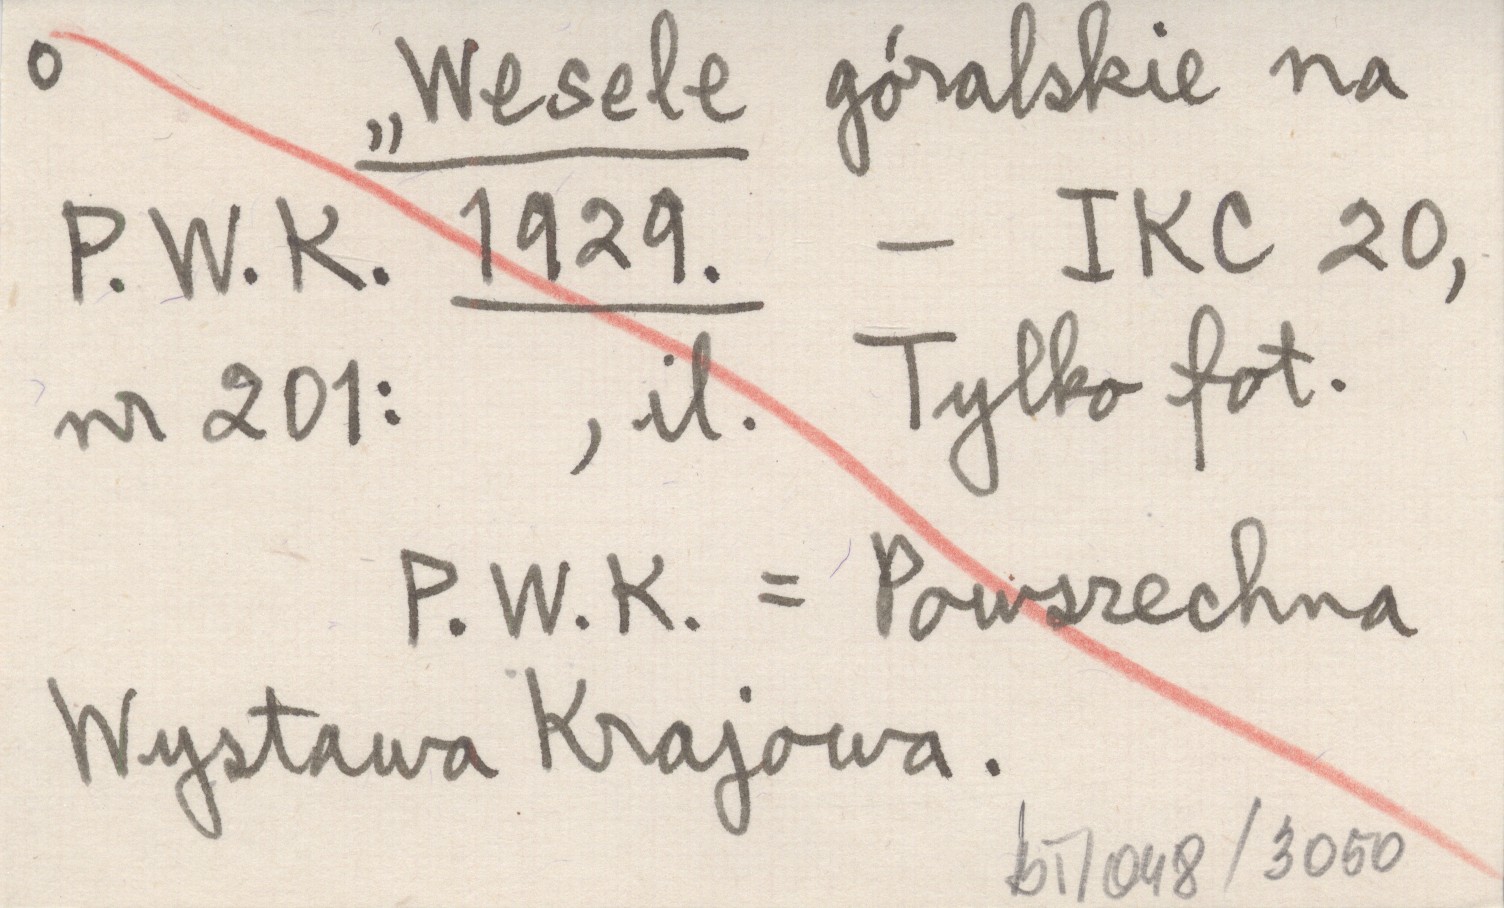 o „Wesele góralskie na
P.W.K. 1929. – IKC 20,
nr 201: , il. Tylko fot.
P.W.K. = Powszechna
Wystawa Krajowa.
bT/048/3050